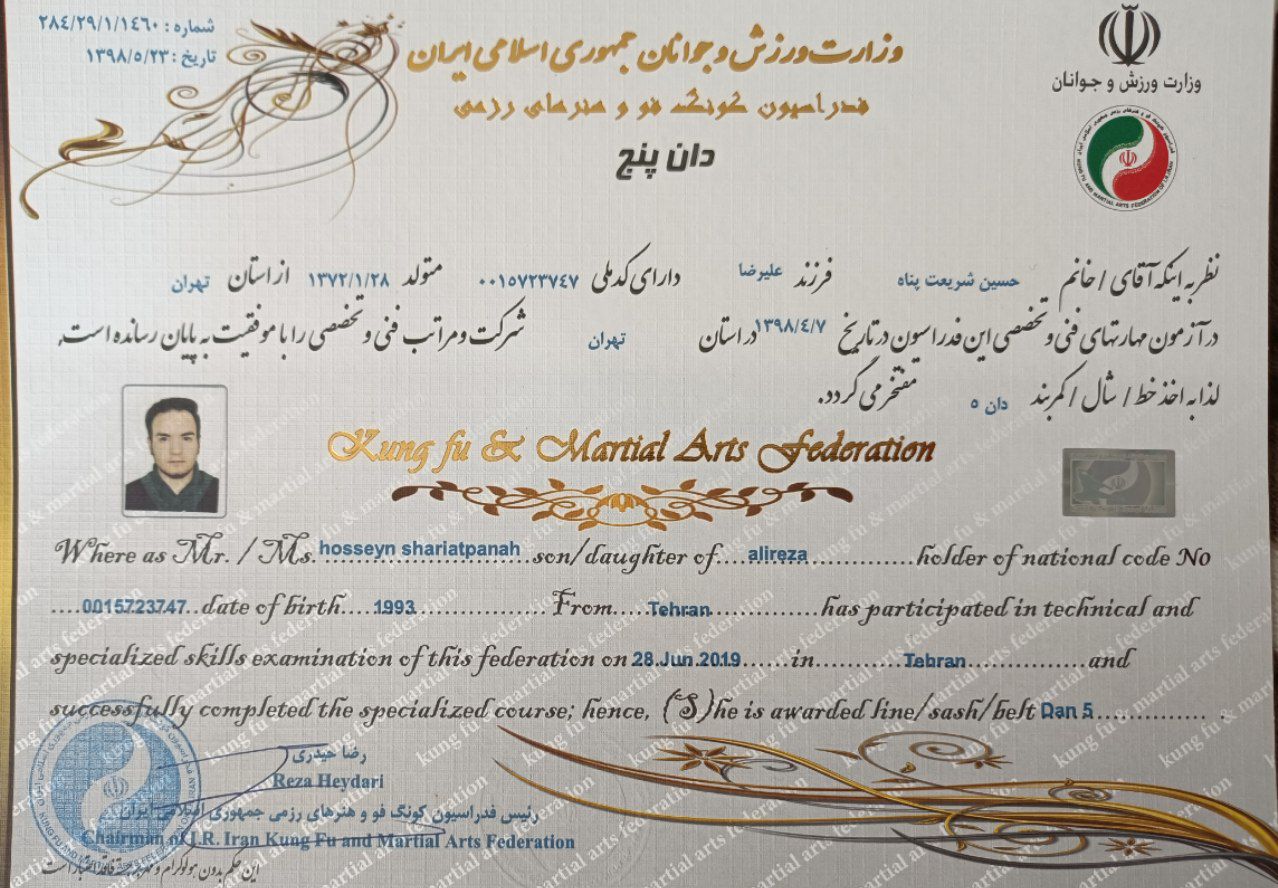 شماره : ۲۸٤/۲۹/۱/۱٤٦۰
تاریخ : ۱۳۹۸/۵/۲۳
وزارت ورزش و جوانان جمهوری اسلامی ایران
فدراسیون کونگ فو و هنرهای رزمی
دان پنج
وزارت ورزش و جوانان
نظر به اینکه آقای / خانم حسین شریعت پناه فرزند علیرضا دارای کد ملی ۰۰۱۵۷۲۳۷٤۷ متولد ۱۳۷۲/۱/۲۸ از استان تهران
در آزمون مهارتهای فنی و تخصصی این فدراسیون در تاریخ ۱۳۹۸/٤/۷ در استان تهران شرکت و مراتب فنی و تخصصی را با موفقیت به پایان رسانده است.
لذا به اخذ خط / شال / کمربند دان ۵ مفتخر می گردد.
Kung fu & Martial Arts Federation
Where as Mr. / Ms. hosseyn shariatpanah son/daughter of.... alireza ...............holder of national code No
.....0015723747..date of birth....1993.....................From.....Tehran................has participated in technical and
specialized skills examination of this federation on 28.Jun.2019.......in.............Tehran.................and
successfully completed the specialized course; hence, (S)he is awarded line/sash/belt Dan 5............... .
رضا حیدری
Reza Heydari
رئیس فدراسیون کونگ فو و هنرهای رزمی جمهوری اسلامی ایران
Chairman of I.R. Iran Kung Fu and Martial Arts Federation
این حکم بدون هولوگرام و مهر برجسته فاقد اعتبار است